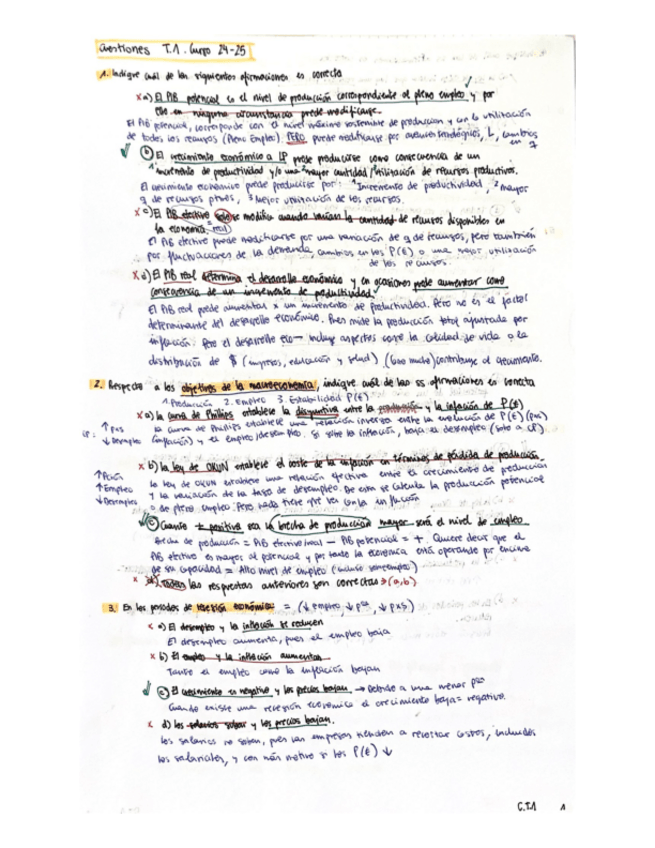 Cuestiones T.1. Curso 24-25
1. Indique cuál de las siguientes afirmaciones es correcta
x a) El PIB potencial es el nivel de producción correspondiente al pleno empleo y por
ello en ninguna circunstancia puede modificarse.
El PIB potencial, corresponde con el nivel máximo sostenible de produccion y con la utilización
de todos los recursos (Pleno Empleo). PERO puede modificarse por avances tecnológicos, L, cambios
en
b) El crecimiento económico a LP puede producirse como consecuencia de un
1 incremento de productividad y/o una 2 mayor cantidad/3 utilización de recursos productivos.
El crecimiento económico puede producirse por: 1 Incremento de productividad, 2 mayor
q de recursos ptivos, 3 Mejor utilización de los recursos.
x c) El PIB efectivo solo se modifica cuando varían la cantidad de recursos disponibles en
la economía (= real)
El PIB efectivo puede modificarse por una variación de q de recursos, pero también
por fluctuaciones de la demanda, cambios en los P(E) o una mejor utilización
de los recursos.
x d) El PIB real determina el desarrollo económico y en ocasiones puede aumentar como
consecuencia de un incremento de productividad.
El PIB real puede aumentar x un incremento de productividad. Pero no es el factor
determinante del desarrollo económico. Pues mide la producción total ajustada por
inflación. Pero el desarrollo eco → incluye aspectos como la calidad de vida o la
distribución de $ (empresas, educación y salud) contribuye al crecimiento.
2. Respecto a los objetivos de la macroeconomía, indique cuál de las ss afirmaciones es correcta
1. Producción 2. Empleo 3. Estabilidad P(E)
x a) La curva de Philips establece la disyuntiva entre la producción y la inflación de P(E)
la curva de Philips establece una relación inversa entre la evolución de P(E) (pxs)
(inflación) y el empleo/desempleo. Si sube la inflación, baja el desempleo (solo a CP)
CP: ↑ pxs
↓ Desempleo
x b) la ley de OKUN establece el coste de la inflación en términos de pérdida de producción
la ley de OKUN establece una relación efectiva entre el crecimiento de producción
y la variación de la tasa de desempleo. De esta se calcula la producción potencial
o de pleno empleo. Pero nada tiene que ver con la inflación
↑ Pción
↑ Empleo
↓ Desempleo
c) Cuanto + positiva sea la brecha de producción mayor será el nivel de empleo
Brecha de producción = PIB efectivo/real − PIB potencial = +. Quiere decir que el
PIB efectivo es mayor al potencial y por tanto la economía está operando por encima
de su capacidad = Alto nivel de empleo (incluso sobreempleo)
x d) Todas las respuestas anteriores son correctas → (a, b).
3. En los periodos de recesión económica: = (↓ empleo, ↓ pción, ↓ pxs)
x a) El desempleo y la inflación se reducen
El desempleo aumenta, pues el empleo baja
x b) El empleo y la inflación aumentan
Tanto el empleo como la inflación bajan
c) El crecimiento es negativo y los precios bajan. → Debido a una menor pción
Cuando existe una recesión económica el crecimiento baja = negativo.
x d) los salarios suben y los precios bajan.
los salarios no suben, pues las empresas tienden a recortar costos, incluidos
los salariales, y con más motivo si los P(E) ↓
C.T.1 1